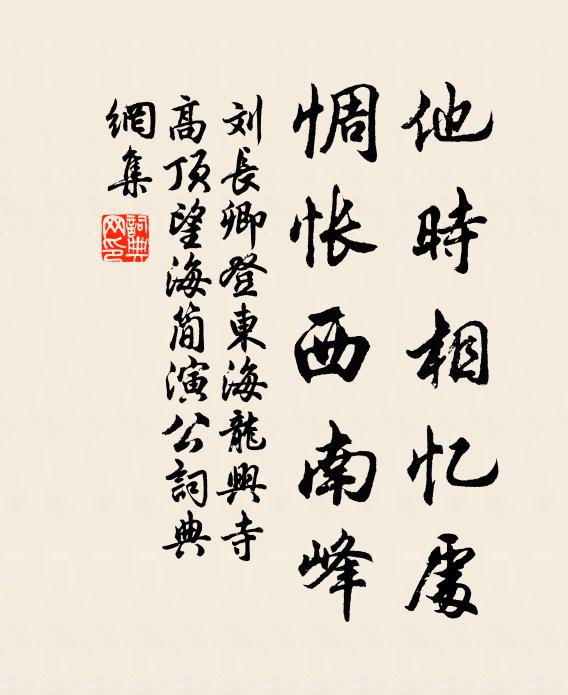 他時相忆處
惆怅西南峰
刘長卿登東海龍興寺
高顶望海简演公詞典
網集
詞典
网印